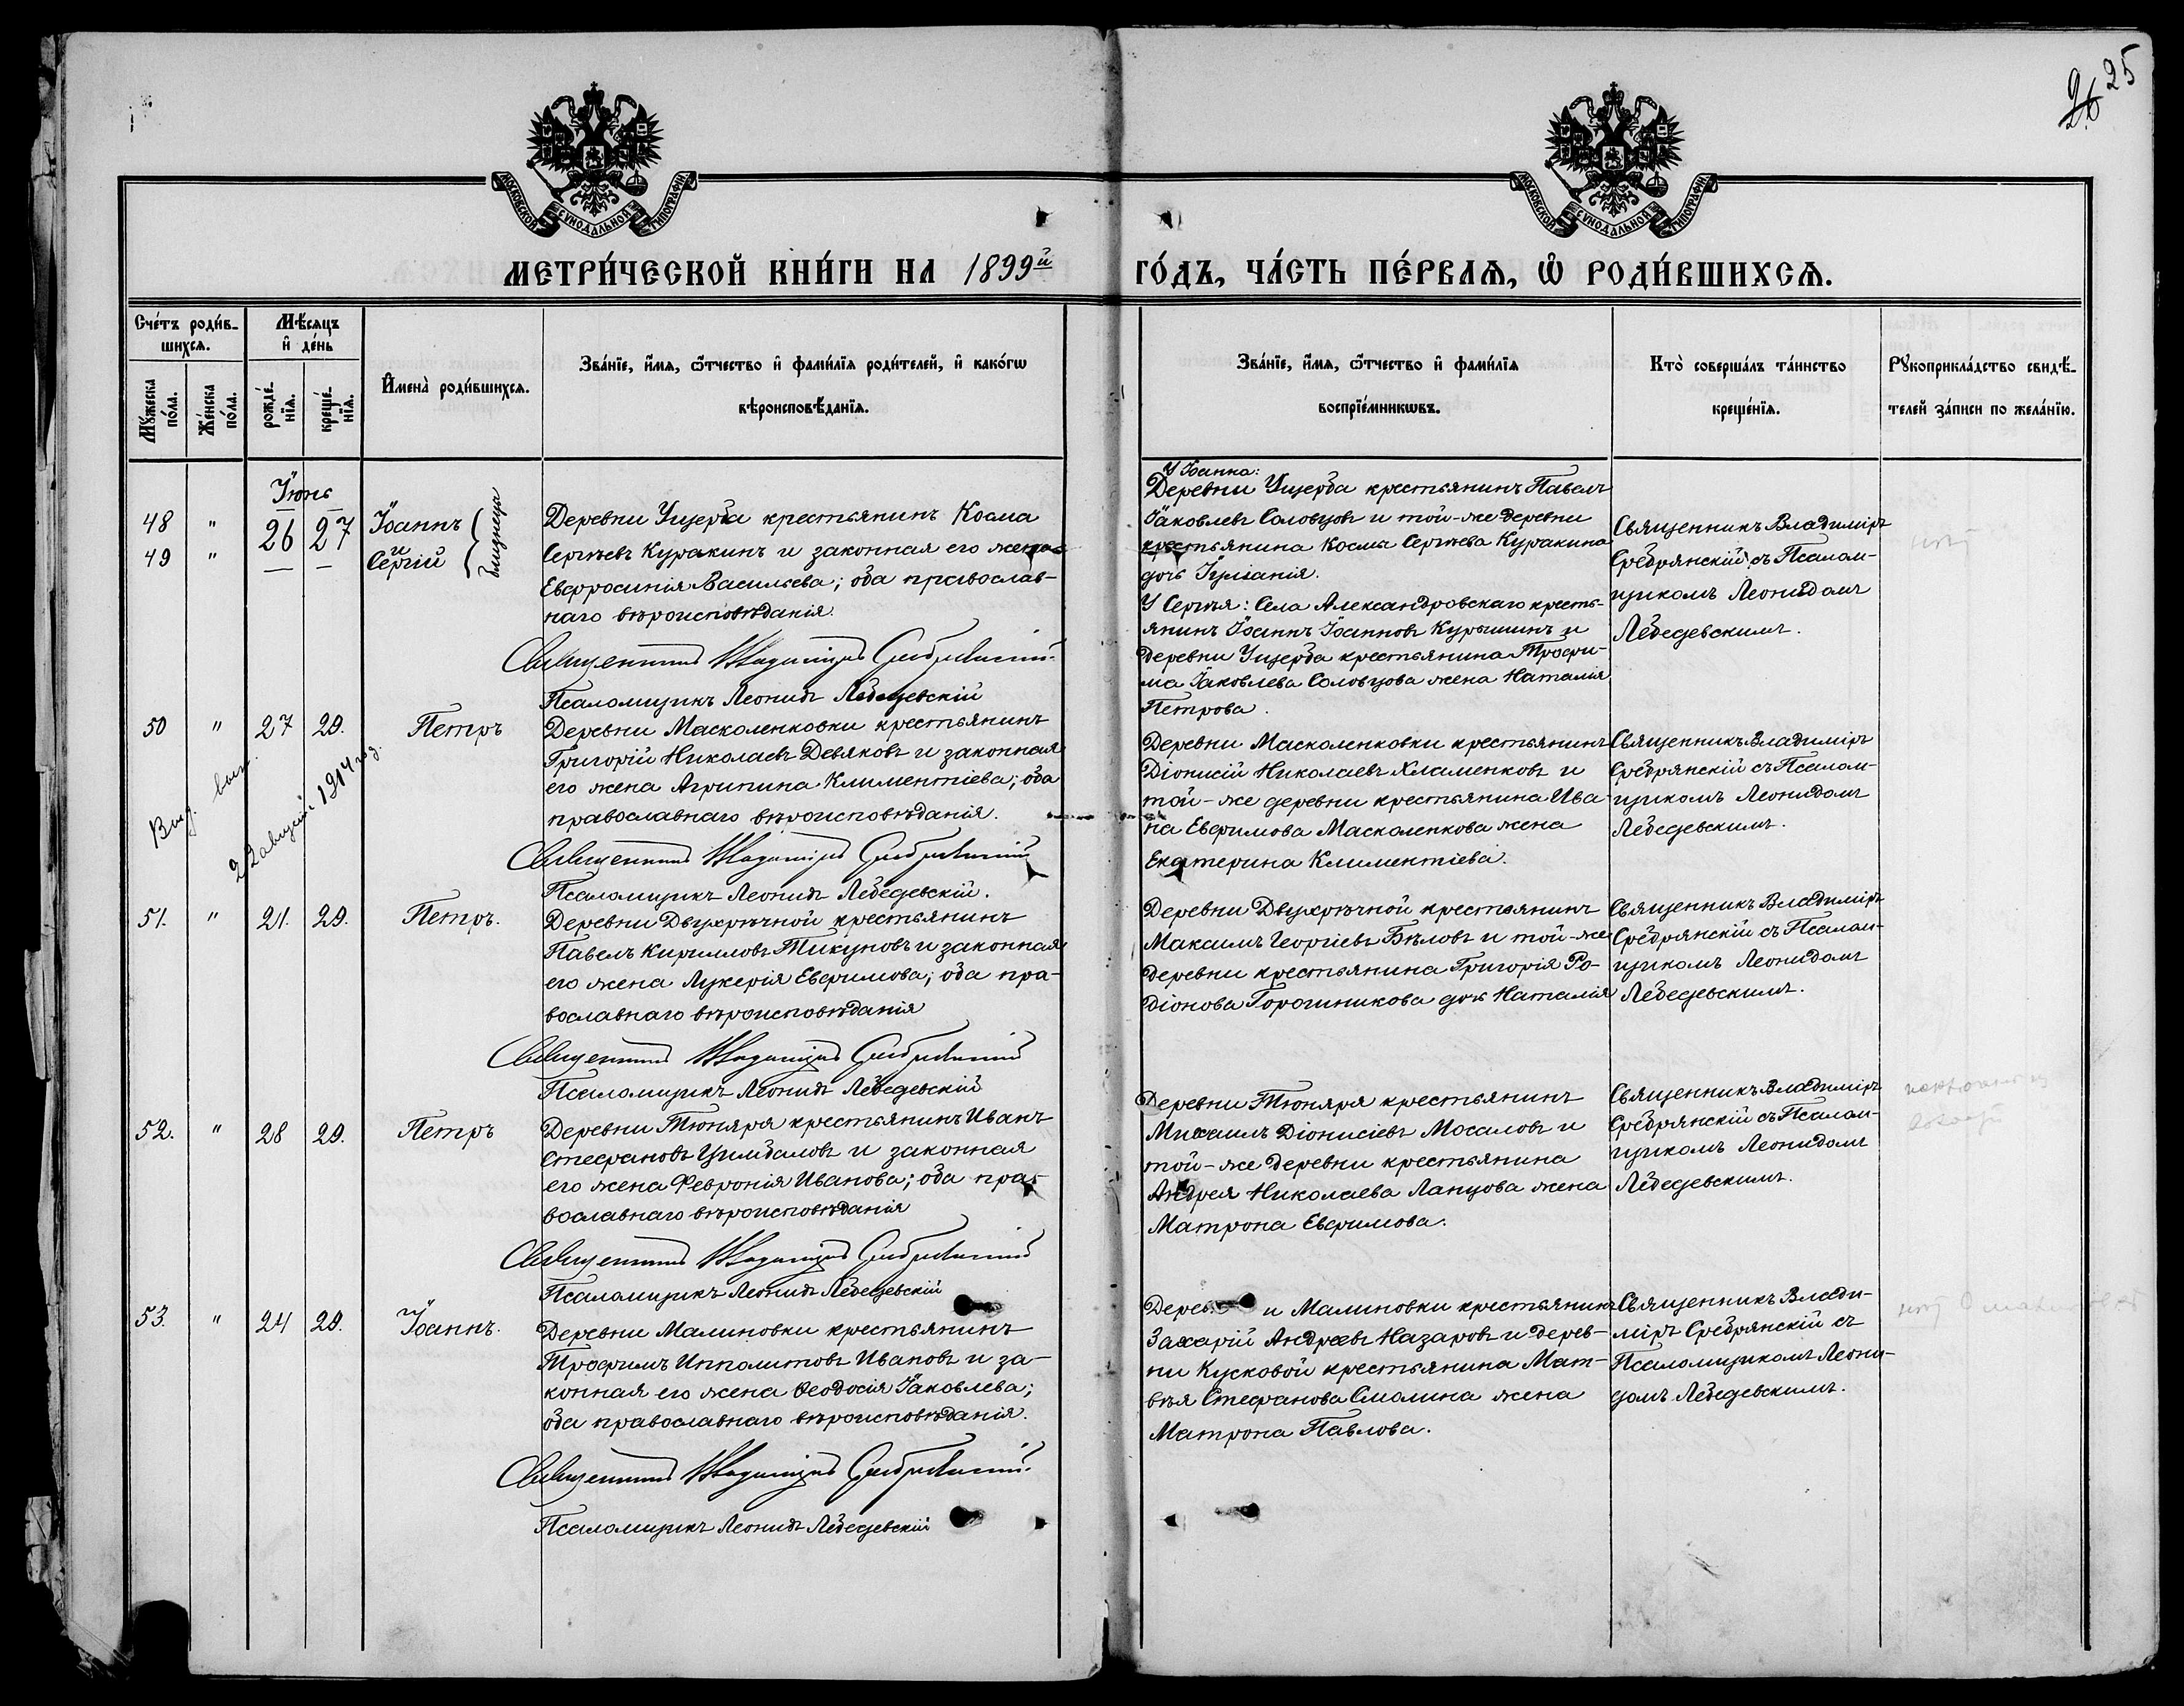 26 25
МОСКОВСКОЙ СѴНОДАЛЬНОЙ ТИПОГРАФІИ
МОСКОВСКОЙ СѴНОДАЛЬНОЙ ТИПОГРАФІИ
МЕТРИ́ЧЕСКОЙ КНИ́ГИ НА 1899й
ГО́ДЪ, ЧА́СТЬ ПЕ́РВАѦ, Ѡ҆ РОДИ́ВШИХСѦ.
Сче́тъ роди́в-
шихсѧ.
Мꙋ́жеска
по́ла.
Же́нска
по́ла.
Мѣ́сѧцъ
и҆ де́нь
рожде́-
нїѧ.
креще́-
нїѧ.
И҆мена̀ роди́вшихсѧ.
Зва́нїе, и҆́мѧ, ѻ҆́тчество и҆ фами́лїѧ роди́телей, и҆ како́гѡ
вѣроисповѣ́данїѧ.
Зва́нїе, и҆́мѧ, ѻ҆́тчество и҆ фами́лїѧ
воспрїе́мникѡвъ.
Кто̀ соверша́лъ та́инство
креще́нїѧ.
Рꙋкоприкла́дство свидѣ́-
телей за́писи по жела́нїю.
Іюнь
48 " 26 27 Іоаннъ
49 " и
Сергій
близнецы
Деревни Ущерба крестьянинъ Косма
Сергѣевъ Куракинъ и законная его жена
Евфросинія Васильева; оба православ-
наго вѣроисповѣданія.
Священникъ Владиміръ Сребрянскій.
Псаломщикъ Леонидъ Лебедевскій
У Іоанна:
Деревни Ущерба крестьянинъ Павелъ
Іаковлевъ Соловцовъ и той-же деревни
крестьянина Космы Сергѣева Куракина
дочь Іуліанія.
У Сергѣя: Села Александровскаго кресть-
янинъ Іоаннъ Іоанновъ Курышинъ и
деревни Ущерба крестьянина Трофи-
ма Іаковлева Соловцова жена Наталія
Петрова.
Священникъ Владиміръ
Сребрянскій съ Псалом-
щикомъ Леонидомъ
Лебедевскимъ.
50 " 27 29. Петръ
Выд. вып.
22 августа 1914 год.
Деревни Масколенковки крестьянинъ
Григорій Николаевъ Девяковъ и законная
его жена Агрипина Климентіева; оба
православнаго вѣроисповѣданія.
Священникъ Владиміръ Сребрянскій
Псаломщикъ Леонидъ Лебедевскій.
Деревни Масколенковки крестьянинъ
Діонисій Николаевъ Хламенковъ и
той-же деревни крестьянина Ива-
на Евфимова Масколенкова жена
Екатерина Климентіева.
Священникъ Владиміръ
Сребрянскій съ Псалом-
щикомъ Леонидомъ
Лебедевскимъ.
51. " 21. 29. Петръ.
Деревни Двухрѣчной крестьянинъ
Павелъ Кирилловъ Тикуновъ и законная
его жена Лукерія Евфимова; оба пра-
вославнаго вѣроисповѣданія
Священникъ Владиміръ Сребрянскій
Псаломщикъ Леонидъ Лебедевскій
Деревни Двухрѣчной крестьянинъ
Максимъ Георгіевъ Бѣловъ и той-же
деревни крестьянина Григорія Ро-
діонова Горошникова дочь Наталія
Священникъ Владиміръ
Сребрянскій съ Псалом-
щикомъ Леонидомъ
Лебедевскимъ.
52. " 28 29. Петръ
Деревни Тюняря крестьянинъ Иванъ
Стефановъ Цимбаловъ и законная
его жена Февронія Иванова; оба пра-
вославнаго вѣроисповѣданія
Священникъ Владиміръ Сребрянскій
Псаломщикъ Леонидъ Лебедевскій
Деревни Тюняря крестьянинъ
Михаилъ Діонисіевъ Мосаловъ и
той-же деревни крестьянина
Андрея Николаева Лапцова жена
Матрона Евфимова.
Священникъ Владиміръ
Сребрянскій съ Псалом-
щикомъ Леонидомъ
Лебедевскимъ.
53. " 24 29. Іоаннъ.
Деревни Малиновки крестьянинъ
Трофимъ Ипполитовъ Ивановъ и за-
конная его жена Ѳеодосія Іаковлева;
оба православнаго вѣроисповѣданія.
Священникъ Владиміръ Сребрянскій.
Псаломщикъ Леонидъ Лебедевскій
Деревни Малиновки крестьянинъ
Захарій Андреевъ Назаровъ и дерев-
ни Кусковой крестьянина Мат-
вѣя Стефанова Смолина жена
Матрона Павлова.
Священникъ Влади-
міръ Сребрянскій съ
Псаломщикомъ Леони-
домъ Лебедевскимъ.